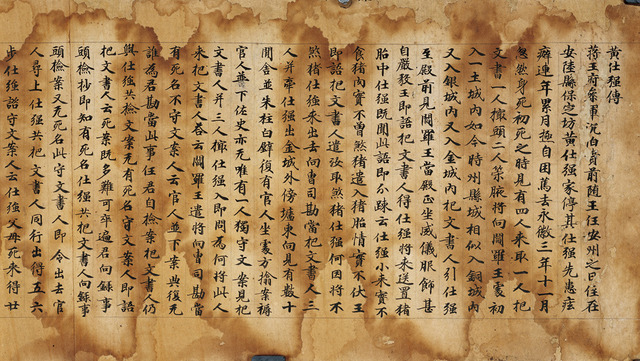 黃仕强傳
蔣王府參軍沈伯貴前隨王任安州之日住在
安陸縣保定坊黃仕强家停其仕强先患痃
癖連年累月極自困篤去永徽三年十一月
忽然身死初死之時見有四人來取一人把
文書一人撮頭二人策腋將向閻羅王處初
入一土城內如今時州縣城相似入銅城內
又入銀城內又入金城內把文書人引仕强
至殿前見閻羅王當殿正坐威儀服飾甚
自嚴毅王即語把文書人得仕强將來送置猪
胎中仕强既聞此語即分疎云仕强小來實不
食猪肉實不曾煞猪遣入猪胎情實不伏王
即語把文書人遣汝取煞猪仕强何因將不
煞猪仕强來出去向曹司勘當把文書人三
人并牽仕强出金城外傍墻東向見有數十
間舍並朱柱白壁復有官人坐處方搨案褥
官人並下佐史亦无唯有一人獨守文案見把
文書人并三人仕强入即問為何將此人
來把文書人答云閻羅王遣將向曹司勘當
有死名不守文案人云官人並下案典復无
誰為君勘當此事任君自檢案把文書人仍
與仕强共檢文案无有死名守文案人即語
把文書人云死案既多難可卒遍君向錄事
頭檢抄即知有死名仕强共把文書人向錄事
頭檢案又无死名此守文書人即令出去官
人尋上仕强共把文書人同行出得五六
步仕强諮守文案人云仕强父母死來得廿